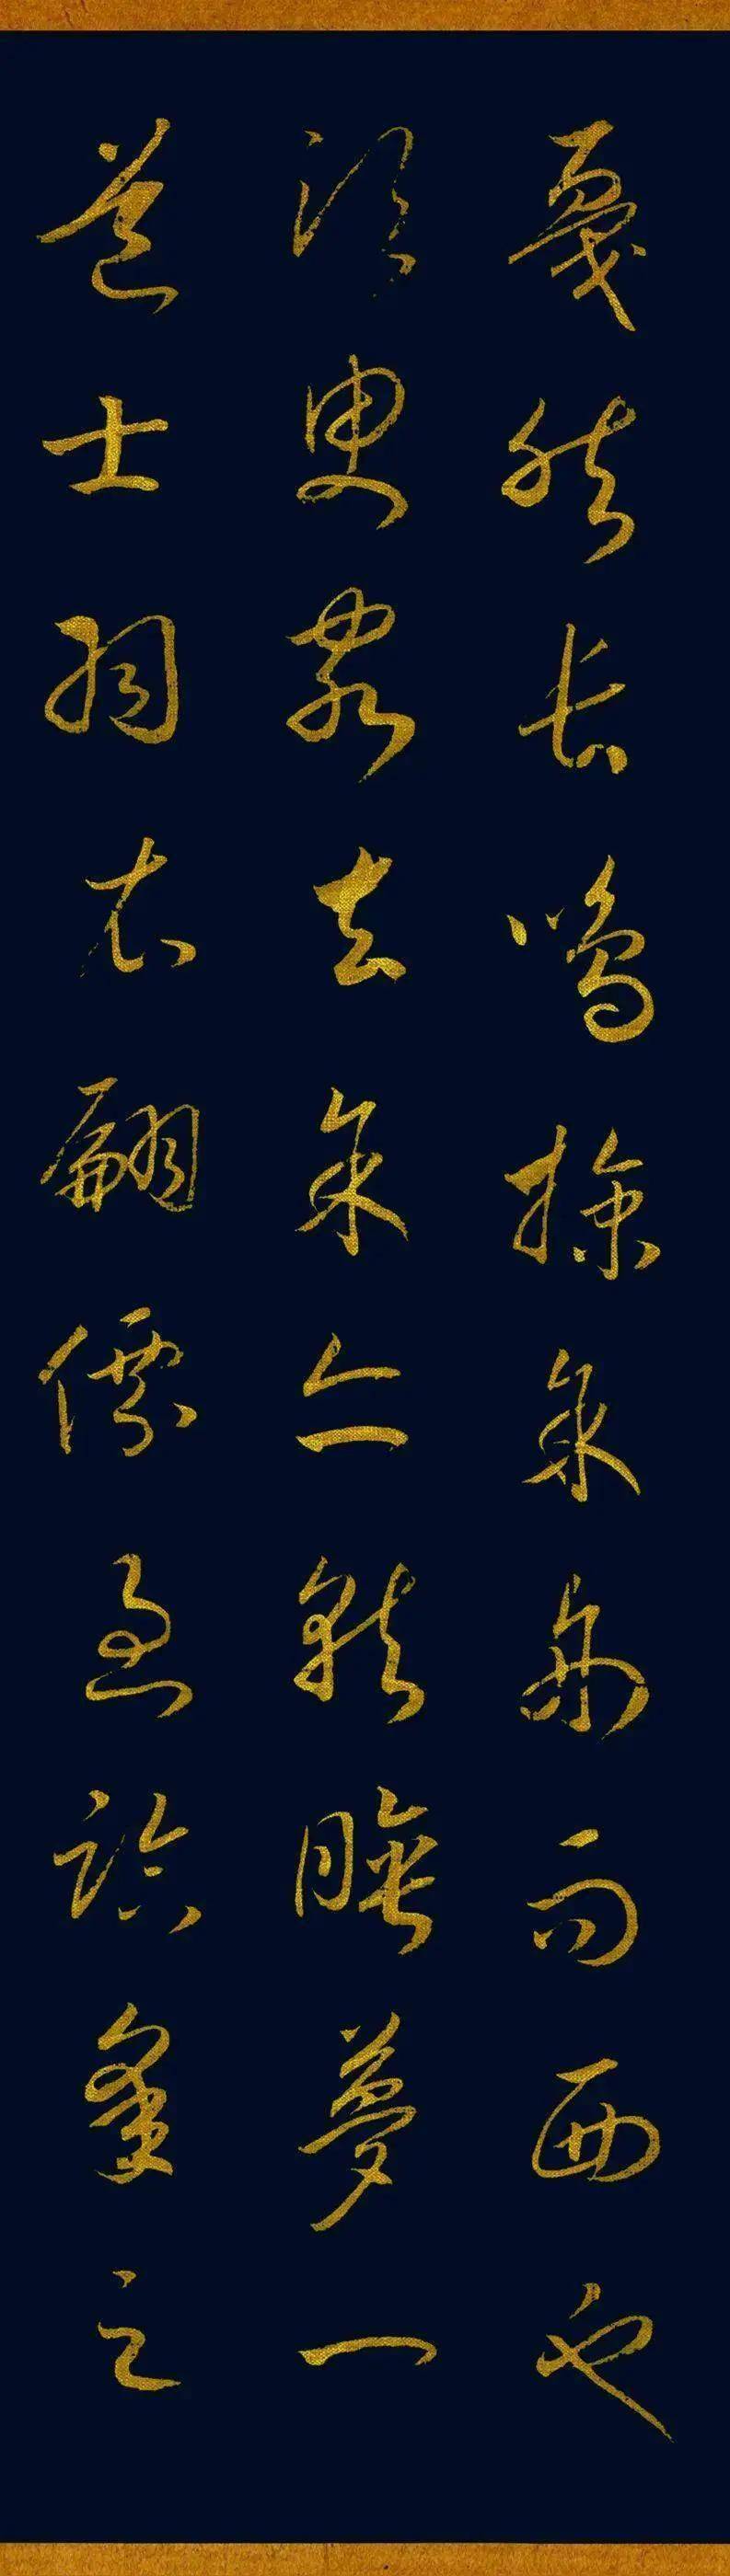 戛然長鳴掠余舟而西也
須臾客去余亦就睡夢一
道士羽衣翩僊過臨皋之